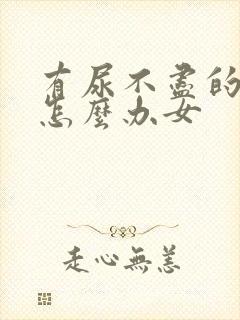 有尿不盡的
怎麼办女
走心無恙